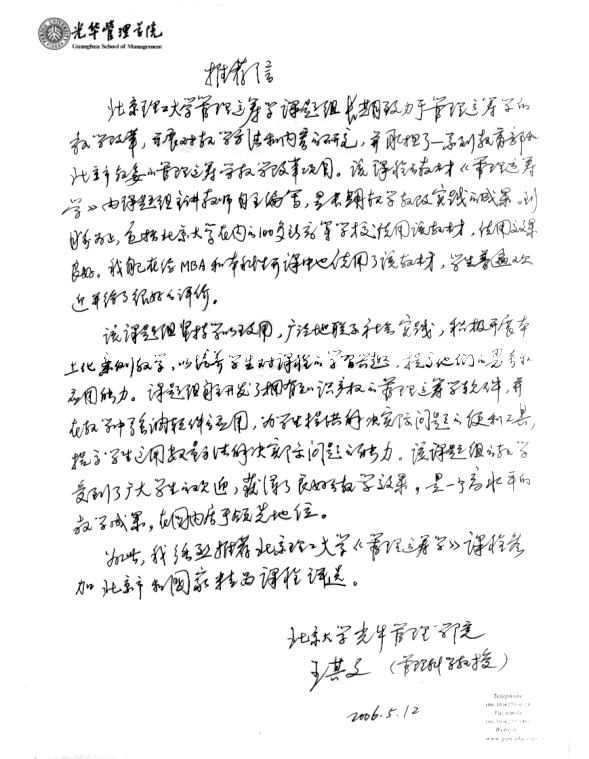 光华管理学院
Guanghua School of Management
推荐信
北京理工大学管理运筹学课题组长期致力于管理运筹学的
教学改革，开展对教学方法和内容的研究，并承担了一系列教育部和
北京市教委的管理运筹学教学改革项目。该课程的教材《管理运筹
学》由课题组主讲教师自主编写，是长期教学教改实践的成果。到
目前为止，包括北京大学在内的100多所高等学校使用该教材，使用效果
良好。我院在给MBA和本科生开课中也使用了该教材，学生普遍欢
迎并给了很好的评价。
该课题组坚持学以致用，广泛地联系社会实践，积极开展本
土化案例教学，以培养学生对课程的学习兴趣，提高他们的思考和
应用能力。课题组自主开发了拥有知识产权的管理运筹学软件，并
在教学中了该软件的运用，为学生提供解决实际问题的便利工具，
提高学生运用数量方法解决实际问题的能力。该课题组的教学
受到了广大学生的欢迎，获得了良好的教学效果，是一个高水平的
教学成果，在国内居于领先地位。
为此，我强烈推荐北京理工大学《管理运筹学》课程参
加北京市和国家精品课程评选。
北京大学光华管理学院
王其文（管理科学教授）
2006.5.12
Telephone
Facsimile
Website